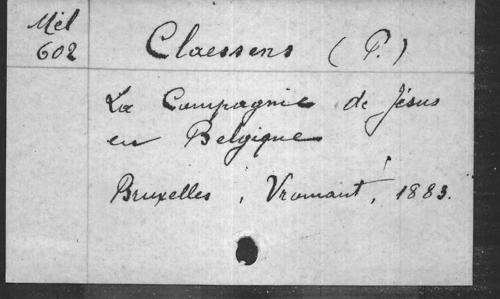 Mél
602
Claessens (P.)
La Compagnie de Jésus
en Belgique
Bruxelles, Vromant, 1883.